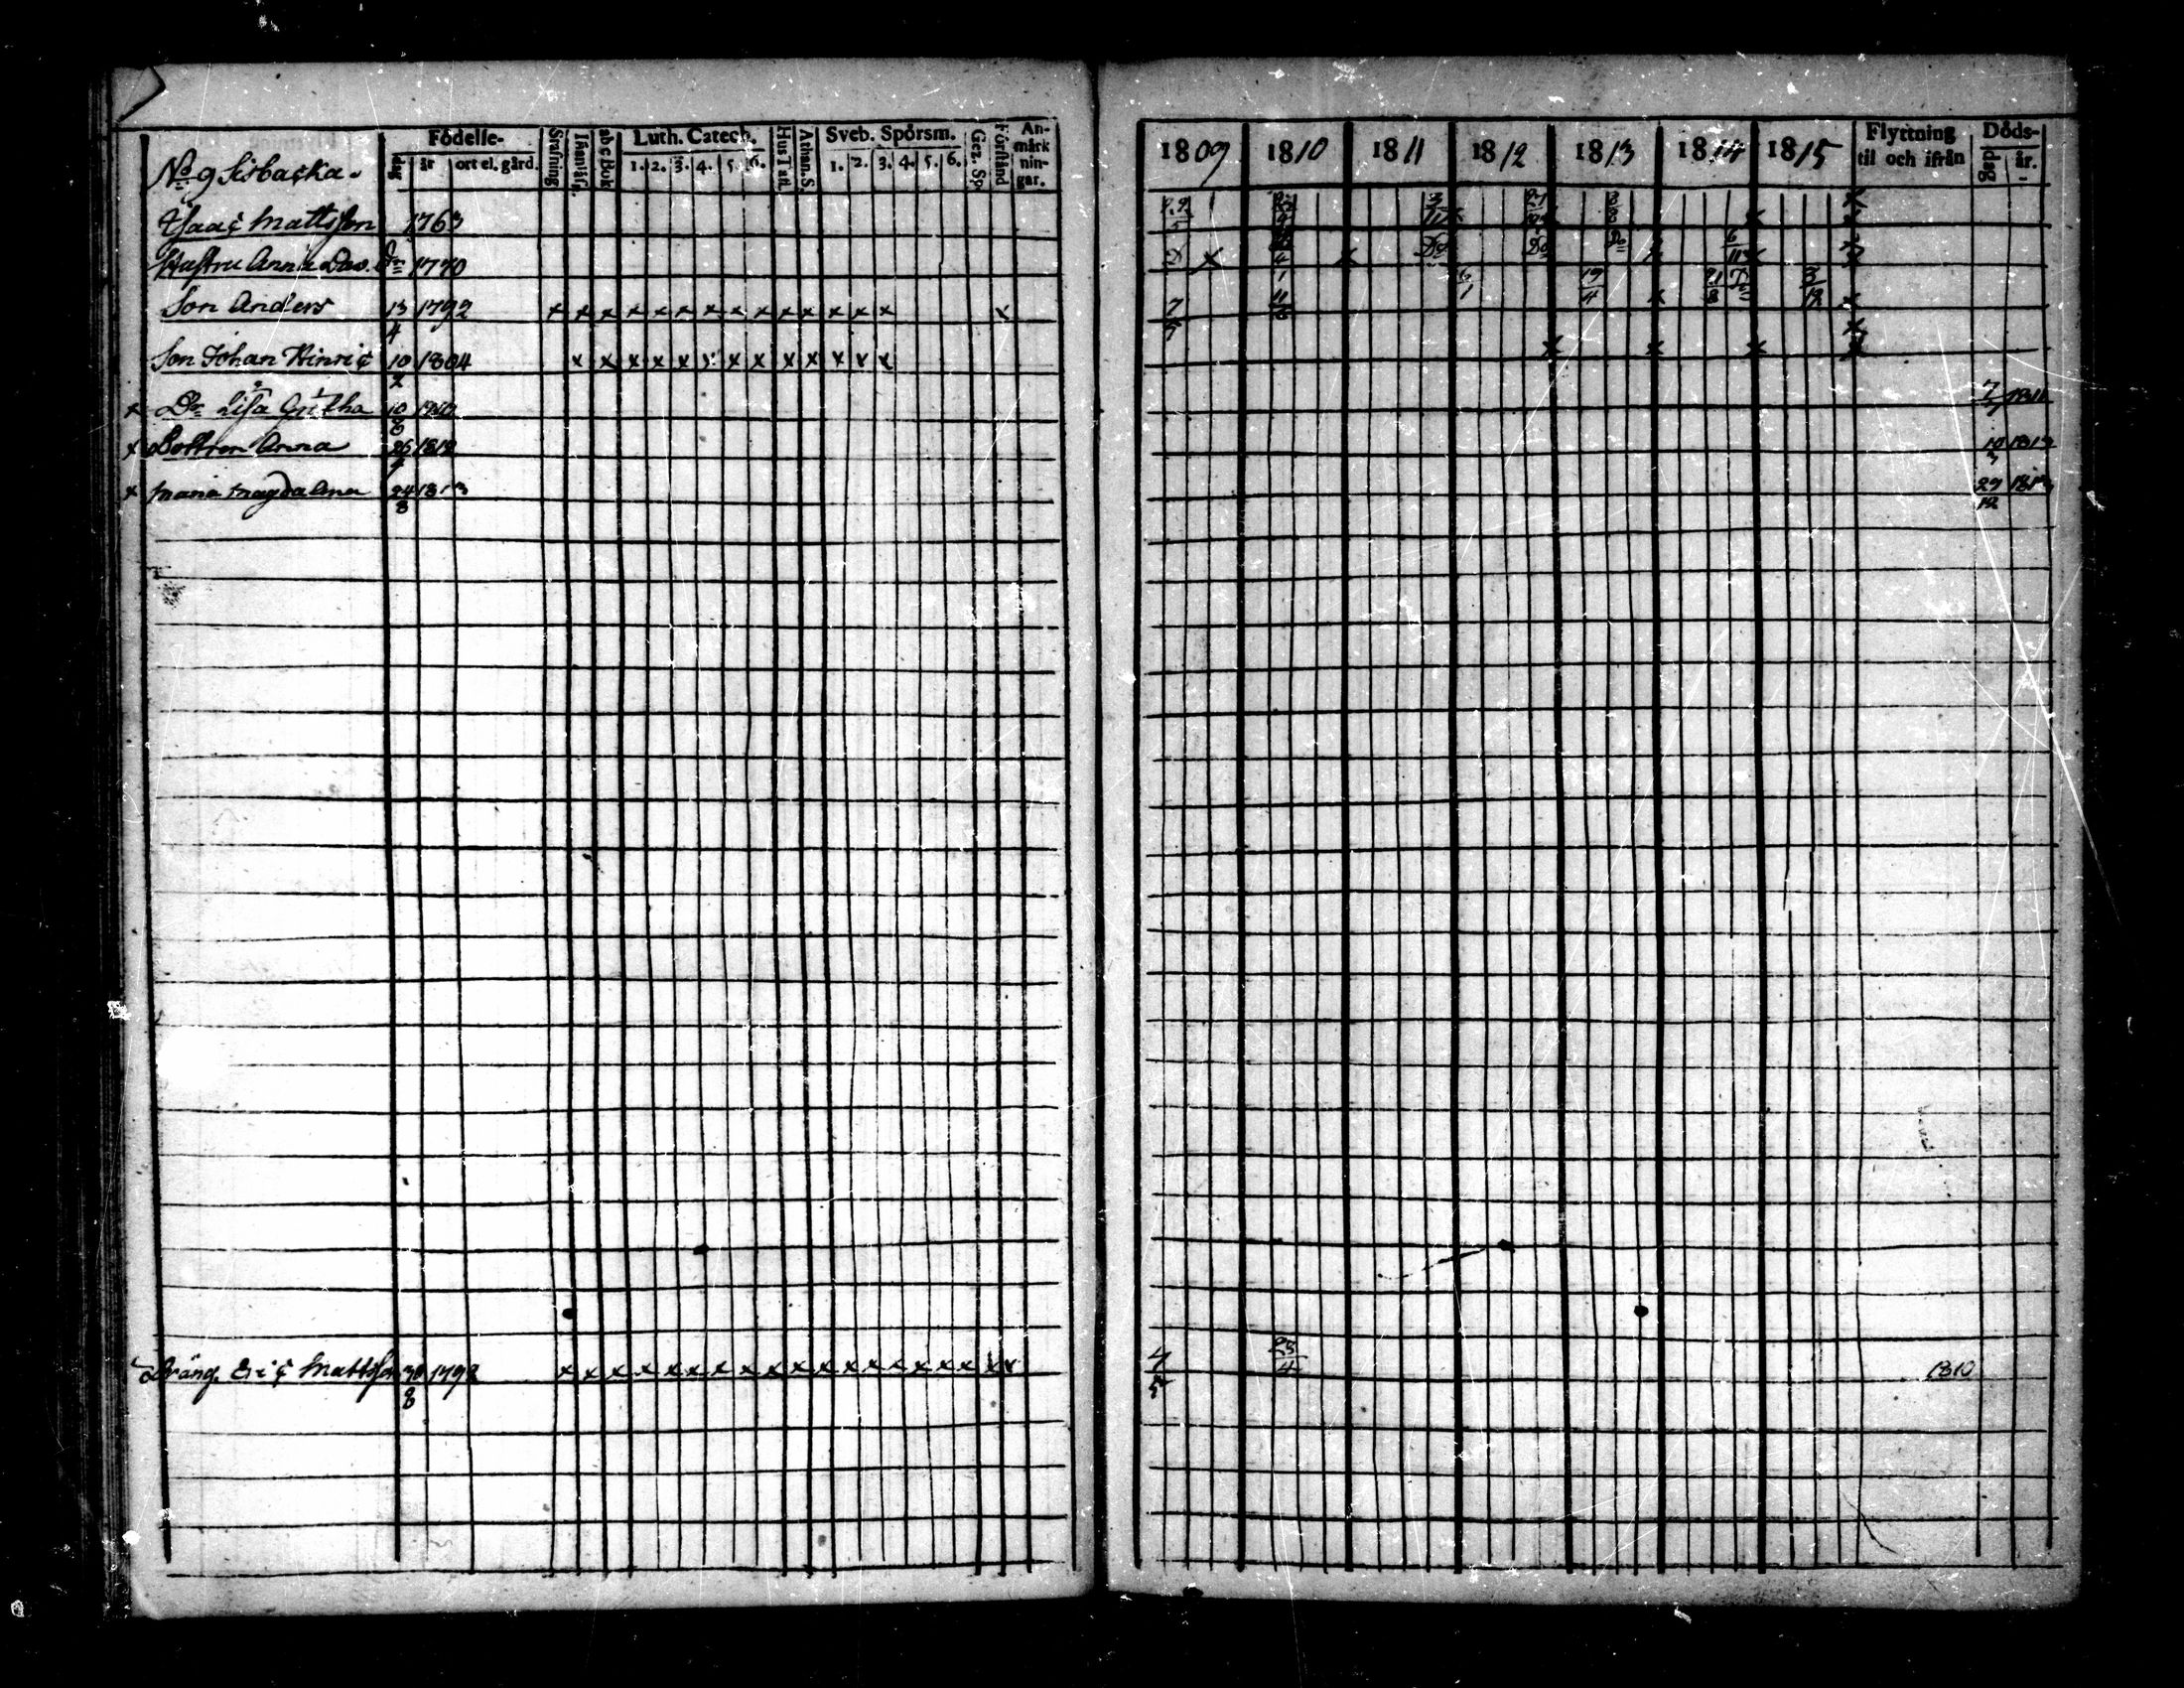 Födelse-
dag år ort el. gård.
Strafning
abcBok
Luth. Catech.
1. 2. 3. 4. 5. 6.
Hus Tafl.
Athan. S
Sveb. Spörsm.
1. 2. 3. 4. 5. 6.
Gez. Sp
Förstånd
An-
märk
nin-
gar.
No 9 Sisbacka.
Isaac Mattsson 1763
Hustru Anna Dav. Dr 1770
Son Anders 13/4 1792 x x x x x x x x x x x x x x x
Son Johan Hinric 10/2 1804 x x x x x x x x x x x x x
x Dr Lisa Gretha 10/6
x Dottren Anna 26 1812
x Maria Magdalena 24/8 1813
Dräng. Eric Mattsson 30/8 1792 x x x x x x x x x x x x x x x x x x x
1809 1810 1811 1812 1813 1814 1815
Flyttning
til och ifrån
Döds-
dag år.
3/11
Do Do Do 6/11
6/1 19/4 21/8 3/12
7/5
7/7 1811
10/3 1812
29/12 1813
4/5 25/4 1810